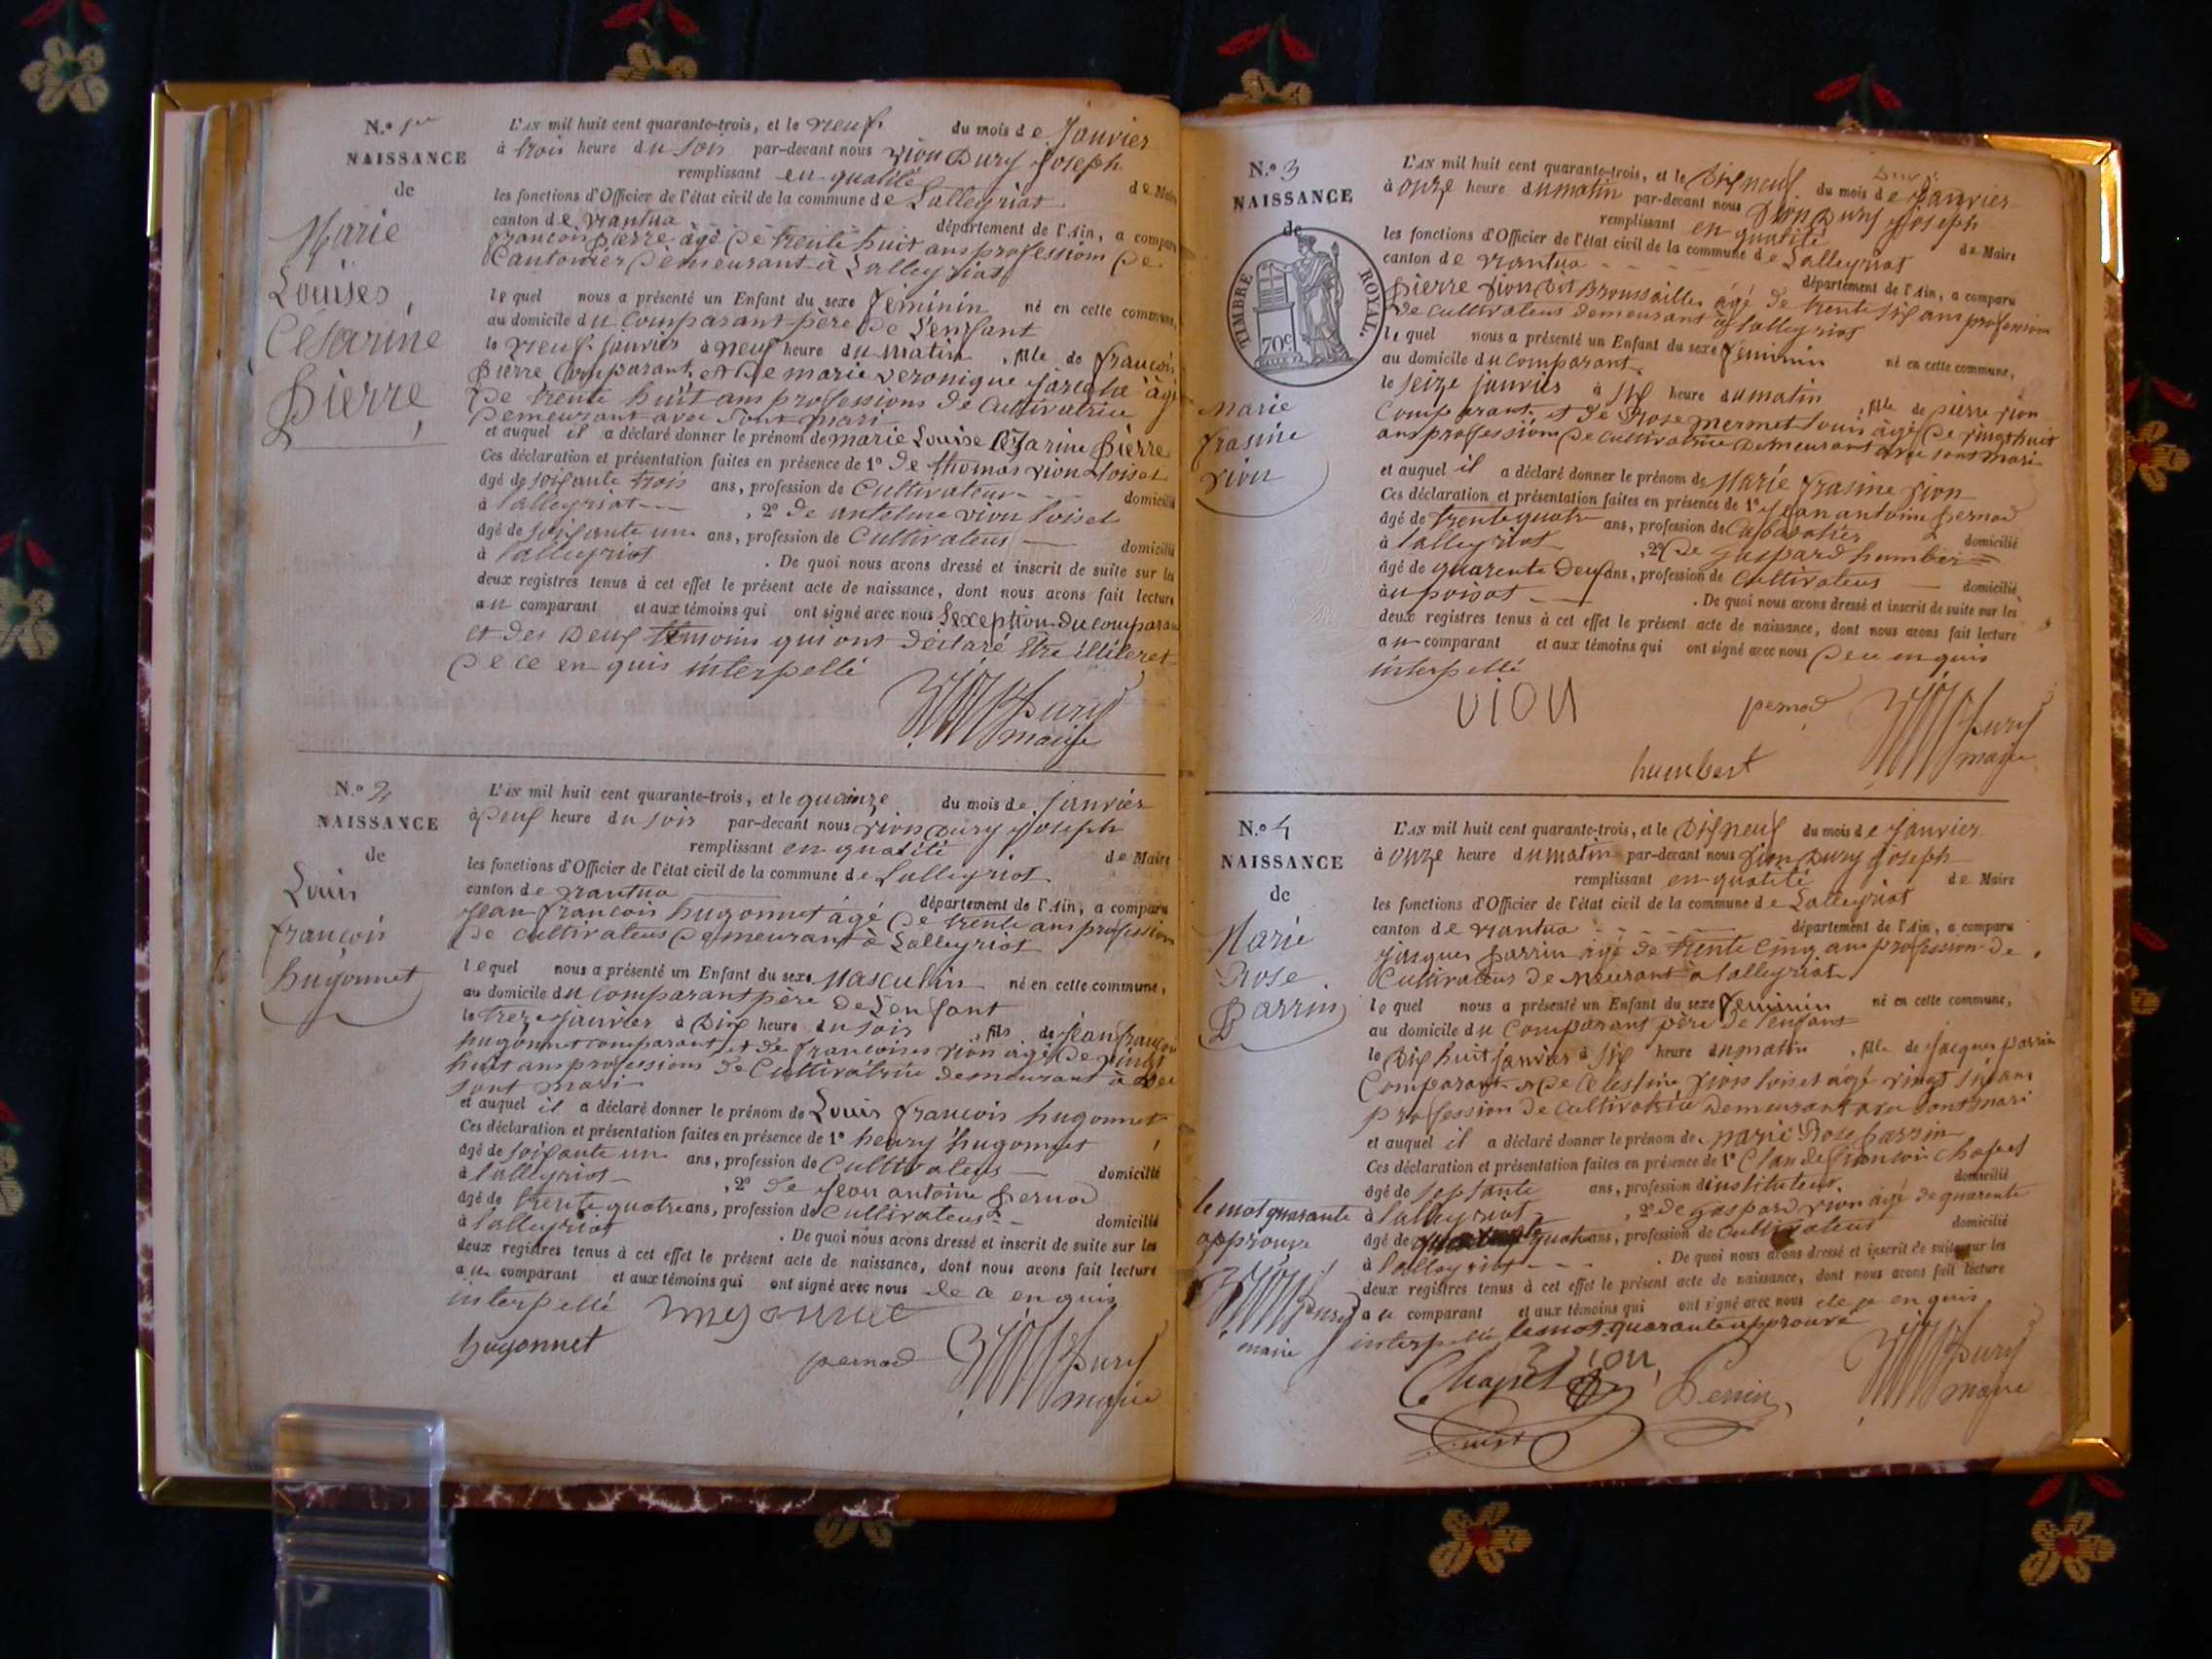 N.º 1er
NAISSANCE
de
Marie
Louises
Césarine
Pierre
L'AN mil huit cent quarante-trois, et le neuf du mois de Janvier
à trois heure du soir par-devant nous vion Dury Joseph
remplissant en qualité de Maire
les fonctions d'Officier de l'état civil de la commune de Lalleyriat
canton de nantua département de l'Ain, a comparu
françois pierre âgé de trente huit ans profession de
Cantonier demeurant à Lalleyriat
lequel nous a présenté un Enfant du sexe féminin né en cette commune,
au domicile du comparant père de l'enfant
le neuf janvier à neuf heure du matin, fille de françois
pierre Comparant, et de marie veronique âgé
de trente huit ans professions de Cultivatrice
demeurant avec sont mari
et auquel il a déclaré donner le prénom de marie Louise Césarine Pierre
Ces déclaration et présentation faites en présence de 1º de thomas vion Loiset
âgé de soixante trois ans, profession de Cultivateur domicilié
à lalleyriat, 2º de antelme vion loiset
âgé de soixante un ans, profession de Cultivateur domicilié
à lalleyriat. De quoi nous avons dressé et inscrit de suite sur les
deux registres tenus à cet effet le présent acte de naissance, dont nous avons fait lecture
au comparant et aux témoins qui ont signé avec nous l'exeption du comparant
et des deux témoins qui ont déclaré être illiteret
de ce en quis interpellé
Dury
maire
N.º 2
NAISSANCE
de
Louis
françois
hugonnet
L'AN mil huit cent quarante-trois, et le quinze du mois de Janvier
à deux heure du soir par-devant nous vion Dury joseph
remplissant en qualité de Maire
les fonctions d'Officier de l'état civil de la commune de Lalleyriat
canton de nantua département de l'Ain, a comparu
Jean françois hugonnet âgé de trente ans profession
de cultivateur demeurant à Lalleyriat
lequel nous a présenté un Enfant du sexe Masculin né en cette commune,
au domicile du comparant père de l'enfant
le treze janvier à dix heure du soir, fils de Jean françois
hugonnet comparant, et de françoises vion âgé de vingt
huit ans professions de Cultivatrice demeurant à vec
sont mari
et auquel il a déclaré donner le prénom de Louis françois hugonnet
Ces déclaration et présentation faites en présence de 1º henry hugonnet
âgé de soixante un ans, profession de Cultivateur domicilié
à lalleyriat, 2º de Jean antoine pernod
âgé de trente quatre ans, profession de Cultivateur domicilié
à lalleyriat. De quoi nous avons dressé et inscrit de suite sur les
deux registres tenus à cet effet le présent acte de naissance, dont nous avons fait lecture
au comparant et aux témoins qui ont signé avec nous de ce en quis
interpellé
hugonnet
pernod Dury
maire
N.º 3
NAISSANCE
de
TIMBRE ROYAL.
70c
Marie
frasine
vion
L'AN mil huit cent quarante-trois, et le dix neuf du mois de janvier
à onze heure du matin par-devant nous vion Dury joseph
remplissant en qualité de Maire
les fonctions d'Officier de l'état civil de la commune de Lalleyriat
canton de nantua département de l'Ain, a comparu
pierre vion dit Broussaille âgé de trente six ans profession
de cultivateur demeurant à lalleyriat
lequel nous a présenté un Enfant du sexe féminin né en cette commune,
au domicile du comparant
le seize janvier à six heure du matin, fille de pierre vion
Comparant, et de Rose mermet âgé de vingt huit
ans professions de cultivatrice demeurant avec sont mari
et auquel il a déclaré donner le prénom de Marie frasine vion
Ces déclaration et présentation faites en présence de 1º jean antoine pernod
âgé de trente quatre ans, profession de Cabaratier domicilié
à lalleyriat, 2º de gaspard humbert
âgé de quarente deux ans, profession de Cultivateur domicilié
au poizat. De quoi nous avons dressé et inscrit de suite sur les
deux registres tenus à cet effet le présent acte de naissance, dont nous avons fait lecture
au comparant et aux témoins qui ont signé avec nous de ce en quis
interpellé
vion pernod Dury
humbert maire
N.º 4
NAISSANCE
de
Marie
Rose
Parrin
L'AN mil huit cent quarante-trois, et le dix neuf du mois de janvier
à onze heure du matin par-devant nous vion Dury joseph
remplissant en qualité de Maire
les fonctions d'Officier de l'état civil de la commune de Lalleyriat
canton de nantua département de l'Ain, a comparu
jacques parrin âgé de trente cinq ans profession de
Cultivateur demeurant à lalleyriat
lequel nous a présenté un Enfant du sexe féminin né en cette commune,
au domicile du comparant père de l'enfant
le dix huit janvier à six heure du matin, fille de jacques parrin
Comparant, et de Célestine vion loiset âgé vingt six ans
profession de cultivatrice demeurant avec sont mari
et auquel il a déclaré donner le prénom de marie Rose parrin
Ces déclaration et présentation faites en présence de 1º Claude françois Chapel
âgé de septante ans, profession d'instituteur domicilié
à lalleyriat, 2º de gaspard vion âgé de quarente
âgé de quatre ans, profession de cultivateur domicilié
à lalleyriat. De quoi nous avons dressé et inscrit de suite sur les
deux registres tenus à cet effet le présent acte de naissance, dont nous avons fait lecture
au comparant et aux témoins qui ont signé avec nous de ce en quis
interpellé le mot quarante approuvé
le mot quarante
approuvé
Dury
maire
Chapel vion Perrin Dury
maire